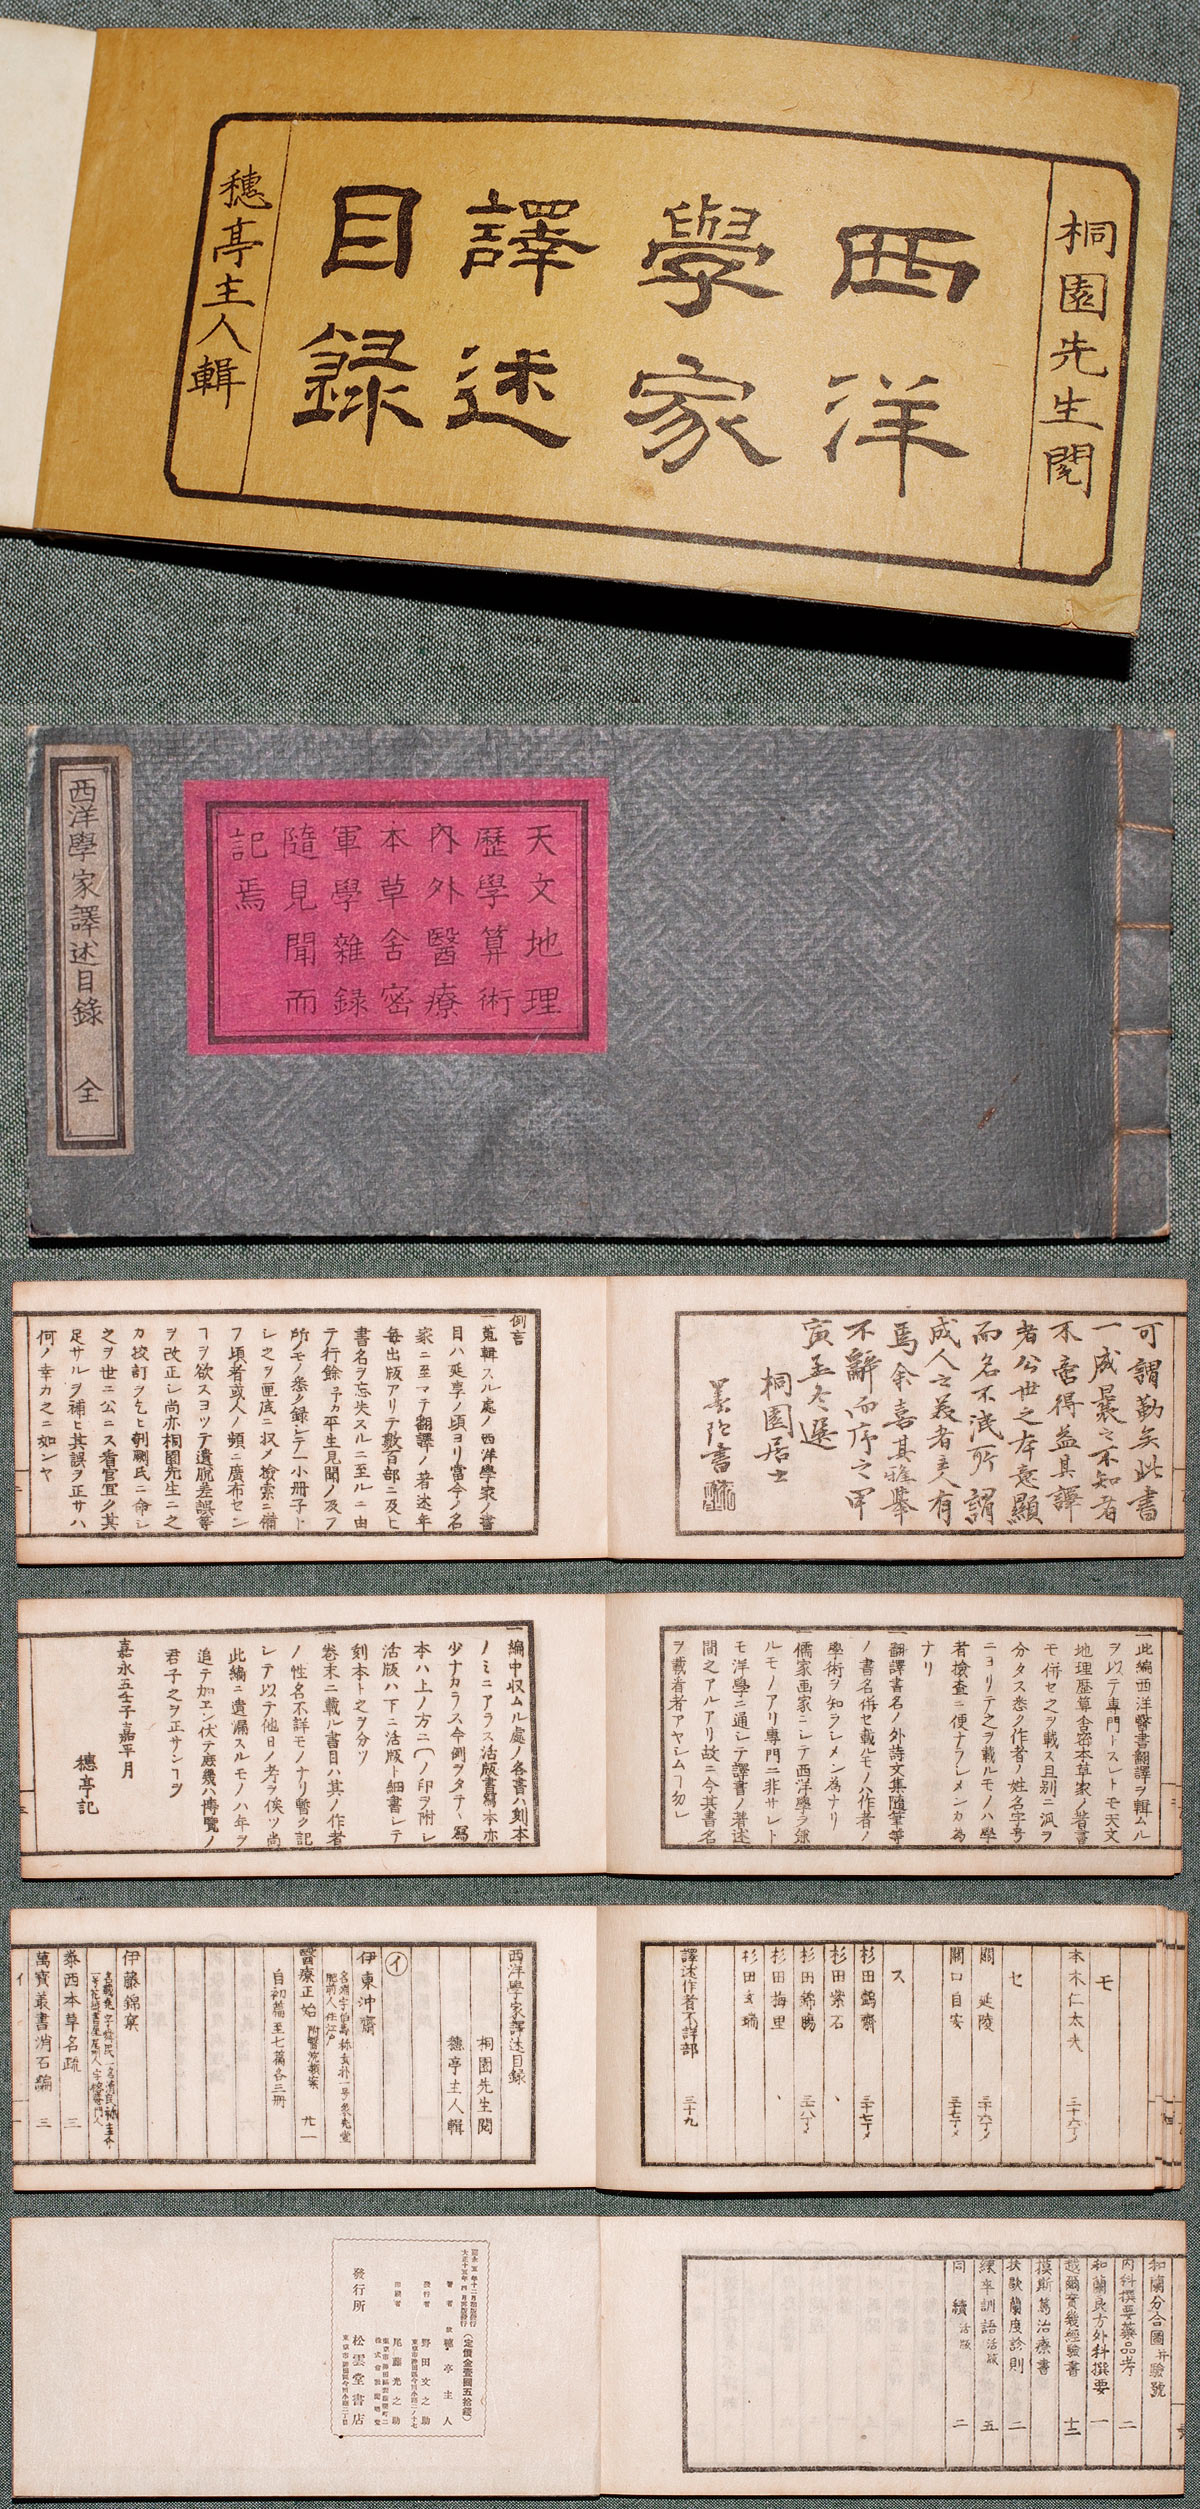 桐園先生閲
西洋
學家
譯述
目録
穂亭主人輯
天文地理
歴學算術
内外醫療
本草舎密
軍學雜録
隨見聞而
記焉。
西洋學家譯述目錄 全
可謂勤矣此書
一成曩之不知者
不啻得益其譯
者公世之本意顯
而名不泯所謂
成人之美者主人有
焉余嘉其雅擧
不辭而序之甲
寅孟冬遯
桐園居士
書
例言
一蒐輯スル處ノ西洋學家ノ書
目ハ延享ノ頃ヨリ當今ノ名
家ニ至マテ翻譯ノ著述年
毎出版アリテ數百部ニ及ヒ
書名ヲ忘失スルニ至ルニ由
テ行餘予カ平生見聞ノ及フ
所ノモノ悉ク録シテ一小册子ト
シ之ヲ匣底ニ収メ檢索ニ備
フ頃者或人ノ頻ニ廣布セン
ヿヲ欲スヨツテ遺脱差誤等
ヲ改正シ尚亦桐園先生ニ之
カ校訂ヲ乞ヒ剞劂氏ニ命シ
之ヲ世ニ公ニス看官宜ク其
足サルヲ補ヒ其誤ヲ正サハ
何ノ幸カ之ニ如ンヤ
一此編西洋醫書翻譯ヲ輯ムル
ヲ以テ專門トスレトモ天文
地理歴算舎密本草家ノ著書
モ併セ之ヲ載ス且別ニ汎ヲ
分タス悉ク作者ノ姓名字号
ニヨリテ之ヲ載ルモノハ學
者檢査ニ便ナラシメンカ為
ナリ
一翻譯書名ノ外詩文集隨筆等
ノ書名併セ載ルモノハ作者ノ
學術ヲ知ラシメン為ナリ
一儒家画家ニシテ西洋學ヲ兼
ルモノアリ專門ニ非サレト
モ洋學ニ通シテ譯書ノ著述
間之アルアリ故ニ今其書名
ヲ載看者アヤシムヿ勿レ
一編中収ムル處ノ各書ハ刻本
ノミニアラス活版書寫本亦
少ナカラス今例ヲタテヽ寫
本ハ上ノ方ニ〔ノ印ヲ附レ
活版ハ下ニ活版ト細書シテ
刻本ト之ヲ分ツ
一卷末ニ載ル書目ハ其ノ作者
ノ性名不詳モノナリ暫ク記
シテ以テ他日ノ考ヲ俟ツ尚
此編ニ遺漏スルモノハ年ヲ
追テ加ヱン伏テ庶幾ハ博覽ノ
君子之ヲ正サンヿヲ
嘉永五壬子嘉平月
穂亭記
モ
本木仁太夫 三十六丁メ
セ
關 延陵 三十六丁メ
關口自安 三十七丁メ
ス
杉田鷧齋 三十七丁メ
杉田紫石 、
杉田錦腸 三十八丁メ
杉田梅里 、
杉田玄端
譯述作者不詳部 三十九
西洋學家譯述目録
桐園先生閲
穂亭主人輯
イ
伊東冲齋
肥前人住江戸
醫療正始 附醫院類案 廿一
自初篇至七篇各三冊
伊藤錦窠
泰西本草名疏 三
萬寶叢書消石編 三
和蘭分合圖并驗號
内科撰要藥品考 二
和蘭良方外科撰要 一
越爾實幾經驗書 十二
模斯篤治療書
扶歇蘭度診則 二
練卒訓語 活版 五
同 續 活版 二
嘉永五年十二月初版發行
大正十五年四月再版發行
(定價金壹圓五拾錢)
著者 故 穂亭主人
發行者 野田文之助
印刷者 尾藤光之助
發行所 松雲堂書店